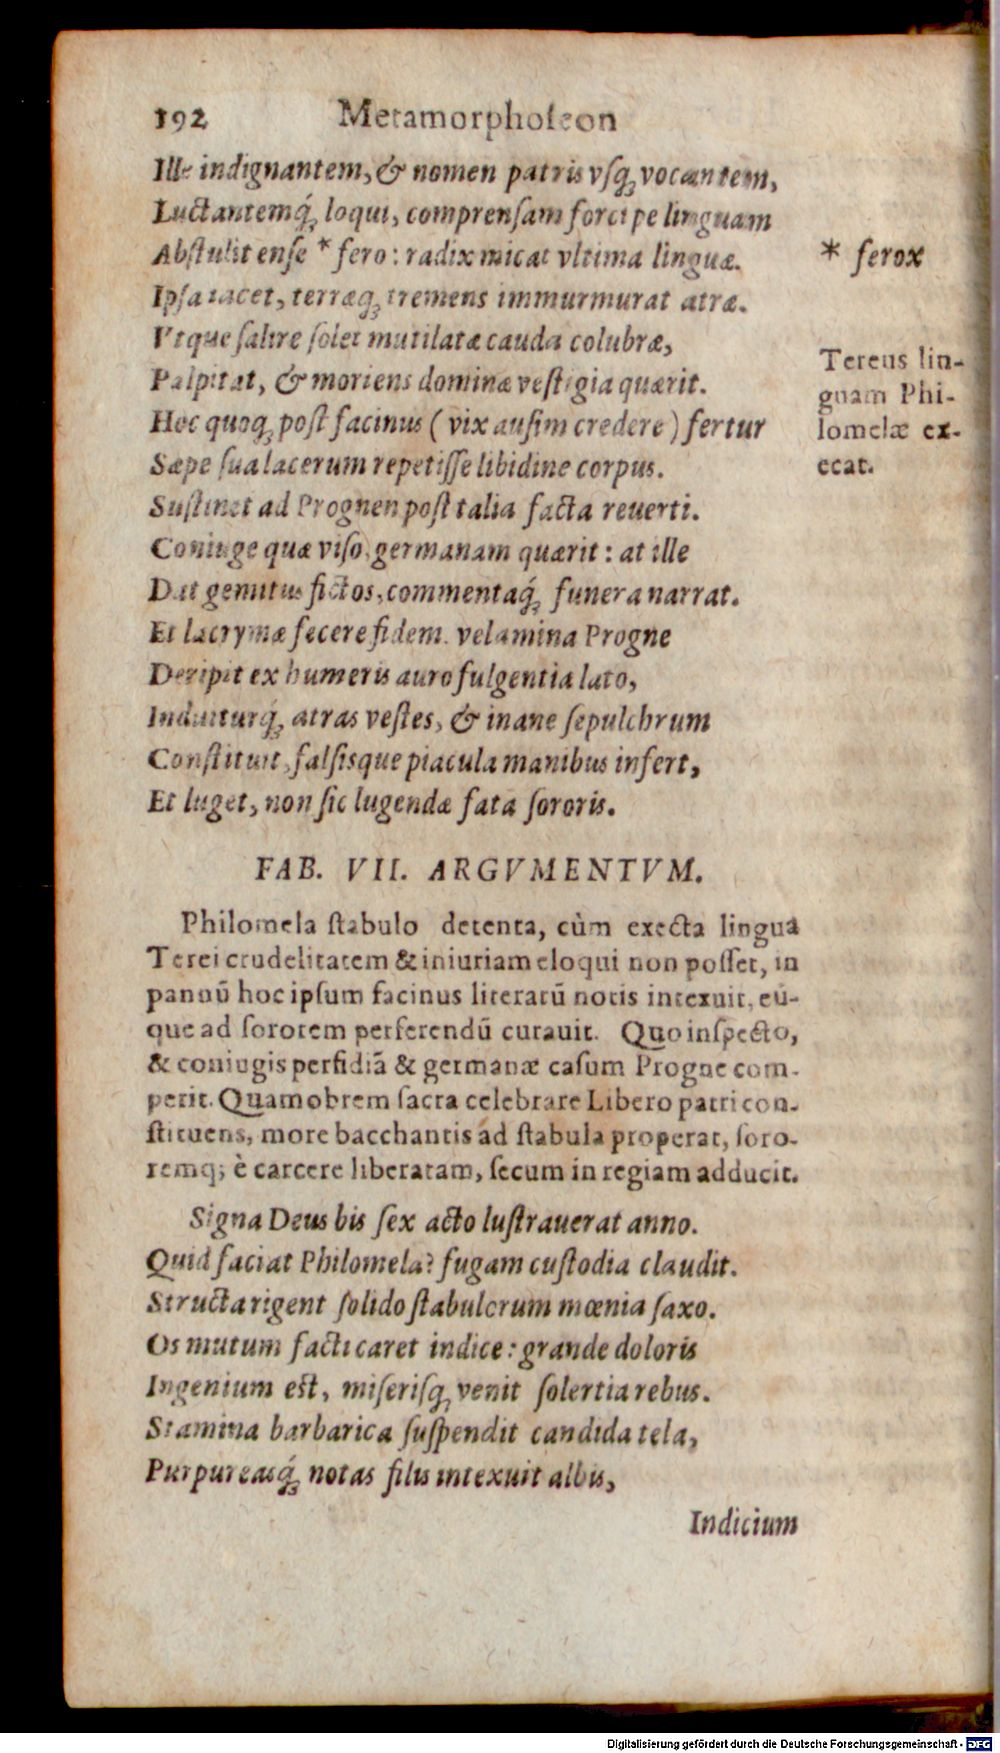 192 Metamorphoſeon
Ille indignantem, & nomen patris vſq; vocantem,
Luctantemq́; loqui, comprenſam forcipe linguam
Abſtulit enſe * fero: radix micat vltima linguæ.
* ferox
Ipſa iacet, terræq; tremens immurmurat atræ.
Vtque ſalire ſolet mutilatæ cauda colubræ,
Palpitat, & moriens dominæ veſtigia quærit.
Hoc quoq; poſt facinus (vix auſim credere) fertur
Sæpe ſua lacerum repetiſſe libidine corpus.
Tereus lin-
guam Phi-
lomelæ ex-
ecat.
Suſtinet ad Prognen poſt talia facta reuerti.
Coniuge quæ viſo, germanam quærit: at ille
Dat gemitus fictos, commentaq́; funera narrat.
Et lacrymæ fecere fidem. velamina Progne
Deripit ex humeris auro fulgentia lato,
Induiturq́; atras veſtes, & inane ſepulchrum
Conſtituit, falſisque piacula manibus infert,
Et luget, non ſic lugendæ fata ſororis.
FAB. VII. ARGVMENTVM.
Philomela ſtabulo detenta, cùm execta lingua
Terei crudelitatem & iniuriam eloqui non poſſet, in
pannū hoc ipſum facinus literarū notis intexuit, eū-
que ad ſororem perferendū curauit. Quo inſpecto,
& coniugis perfidiā & germanæ caſum Progne com-
perit. Quamobrem ſacra celebrare Libero patri con-
ſtituens, more bacchantis ad ſtabula properat, ſoro-
remq; è carcere liberatam, ſecum in regiam adducit.
Signa Deus bis ſex acto luſtrauerat anno.
Quid faciat Philomela? fugam cuſtodia claudit.
Structa rigent ſolido ſtabulorum mœnia ſaxo.
Os mutum facti caret indice: grande doloris
Ingenium eſt, miſeriſq; venit ſolertia rebus.
Stamina barbarica ſuſpendit candida tela,
Purpureasq́; notas filis intexuit albis,
Indicium
Digitalisierung gefördert durch die Deutsche Forschungsgemeinschaft - DFG